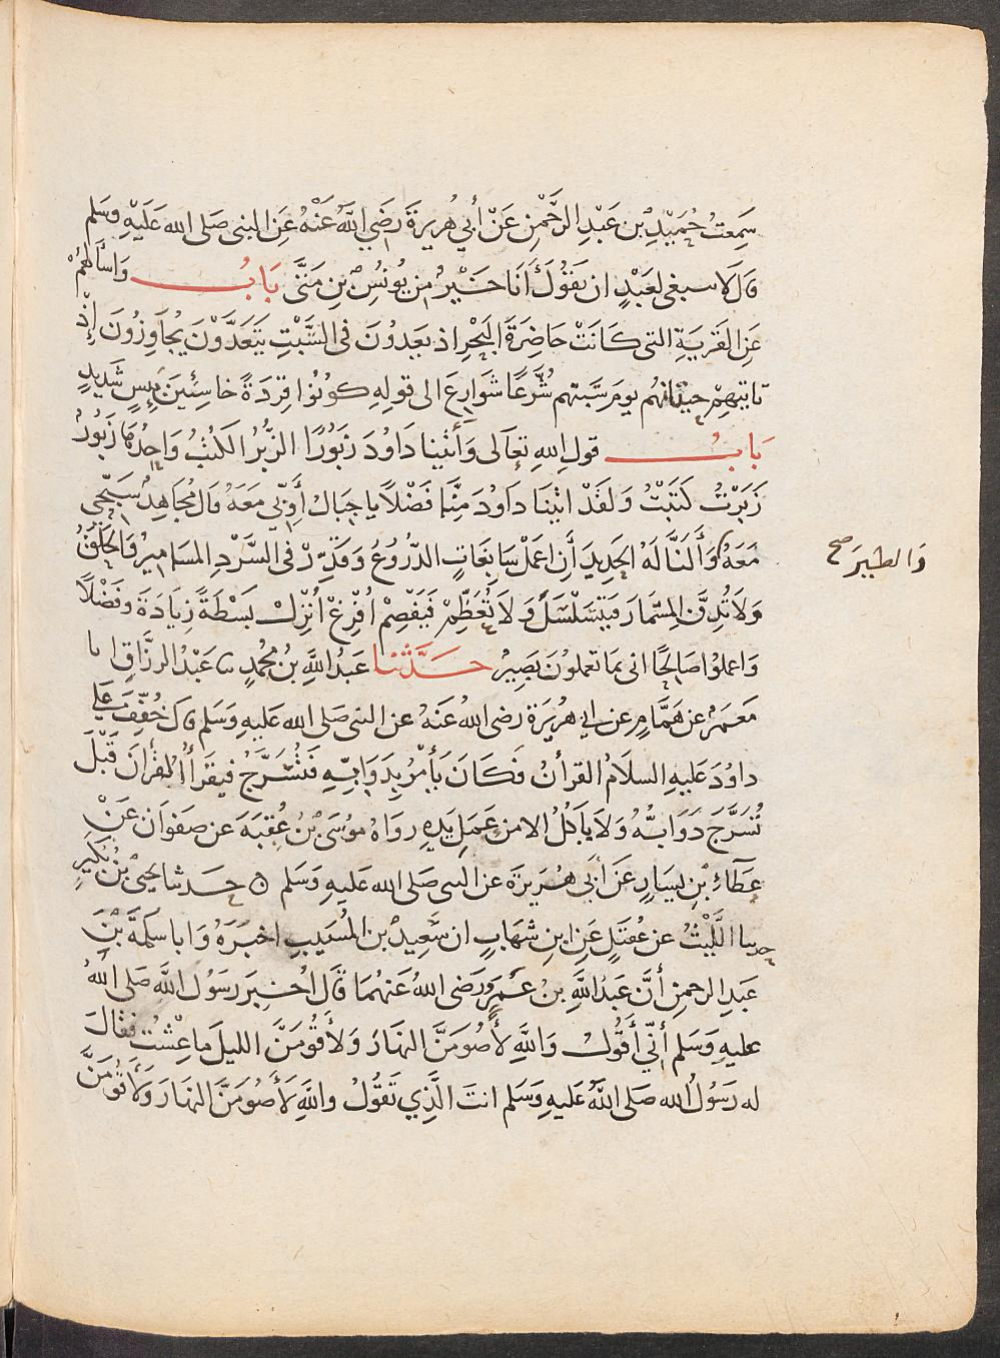 سَمِعتُ حُمَيْدِ بْن عَبْدِ الرَّحْمٰنِ عَنْ أَبِي هُرِيرَةَ رَضِيَ اللهُ عَنْهُ عَنِ النبى صَلى الله عَلَيْهِ وسَلم
قالَ لا سبغى لعَبْدٍ ان يَقُوْلَ أَنَا خَيْرٌ مِن يُونُسَ بْنِ مَتَّى بَابُ وَاسْأَلْهُمْ
عَنِ القَريَةِ التى كَانَتْ حَاضِرَةَ البَحْرِ اذ يَعِدُونَ فى السَّبْتِ يَتَعَدَّوْنَ يُجَاوِزُونَ إِذْ
تاتيهِمْ حيتانهم يومَ سَبْتهم شُرَّعًا شَوَارِعَ الى قولِهِ كونُوْا قِرَدَةً خاسِئِينَ بَئِيسٍ شَدِيدٍ
بَابُ قولِ اللهِ تعالى وَأَتينا دَاوُدَ زَبُورًا الزُّبُرُ الكُتُبُ وَاحِدُهَا زَبُورٌ
زَبَرْتُ كَتَبْتُ وَلقَدْ اتيْنَا دَاوُدَ مِنَّا فَضْلًا يا جِبَالُ أَوِّبِي مَعَهُ قالَ مُجَاهِدٌ سَبِّحِى
مَعَهُ وَأَلَنَّا لَهُ الحَدِيدَ أَنِ اعْمَلْ سَابِغَاتٍ الدّرُوْعُ وَقَدِّرْ فى السَّرْدِ المسَامِيرُ وَالحَلَقُ
وَالطيرَ صح
وَلَا تُدِقَّ المِسْمَارَ فَيَتَسَلْسَلَ وَلَا تُعَظِّمْ فَيَفْصِمْ اَفْرِغْ أَنْزِلْ بَسْطَةً زِيَادَةً وفَضْلًا
وَاعملُوْا صَالِحًا انى بمَا تعملُونَ بَصِيرٌ حَدَّثَنا عَبْدُ اللهِ بْنُ مُحمدٍ نا عَبْدُ الرزَّاقِ انا
مَعمَرٌ عن هَمَّامٍ عن ابي هُرِيْرَةَ رضى الله عَنهُ عن النبى صَلى الله عَليهِ وَسَلم قال خُفِّفَ عَلَى
داوُدَ عَليهِ السلَامُ القرأنُ فكَانَ يَأْمُرُ بِدَوَابِّهِ فتُسْرَجُ فيقْرَأُ القُرأنَ قَبْلَ
تُسْرَجَ دَوَابُّهُ وَلَا يَاكُلُ الا من عَمَلِ يَدِهِ رَوَاهُ مُوْسَى بْنُ عُقْبَةَ عن صَفْوَان عَنْ
عَطَاءِ بْنِ يسَارٍ عَنْ أَبى هُرَيرَة عن النبى صَلى الله عَليهِ وَسَلم ه حَدثنا يحيىْ بْنُ بُكَيرٍ
حدينا اللَّيْثُ عن عُقَيلٍ عَنِ ابنِ شِهَابٍ ان سَعِيدَ بنَ المُسَيبِ اخبَرَهُ وَابا سَلمَةَ بْنَ
عَبدِ الرحمنِ أَنَّ عَبْدَ اللهِ بنَ عَمرٍو رَضى اللهُ عَنهُمَا قَال اُخْبِرَ رَسُول اللهِ صَلى اللهُ
عليهِ وَسَلم اَنِّي أَقُولُ وَاللهِ لَأَصُومَنَّ النهَارَ وَلَأَقُومَنَّ الليلَ ما عِشْتُ فقَالَ
له رَسُوْلُ الله صَلى اللهُ عَليهِ وَسَلم انتَ الَّذِي تَقُولُ وَاللهِ لَأَصُومَنَّ النهَارَ وَلَأَقُومَنَّ